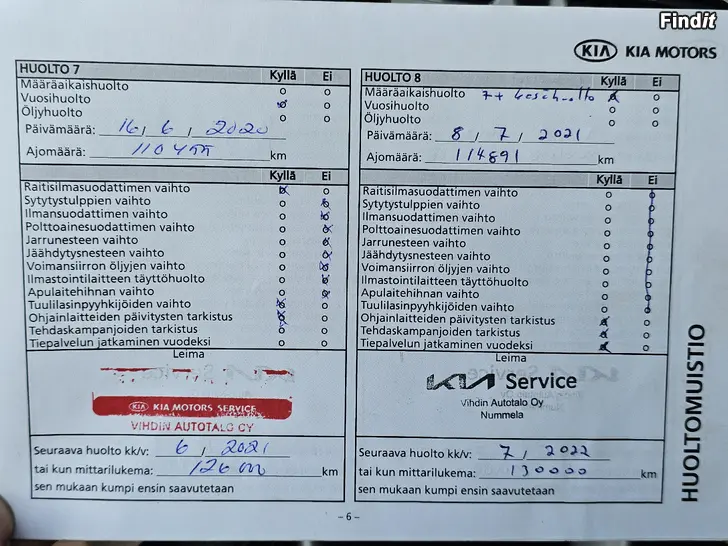 Findit
KIA KIA MOTORS
HUOLTO 7
Kyllä Ei
Määräaikaishuolto
Vuosihuolto
Öljyhuolto
Päivämäärä: 16 / 6 / 2020
Ajomäärä: km
Kyllä Ei
Raitisilmasuodattimen vaihto
Sytytystulppien vaihto
Ilmansuodattimen vaihto
Polttoainesuodattimen vaihto
Jarrunesteen vaihto
Jäähdytysnesteen vaihto
Voimansiirron öljyjen vaihto
Ilmastointilaitteen täyttöhuolto
Apulaitehihnan vaihto
Tuulilasinpyyhkijöiden vaihto
Ohjainlaitteiden päivitysten tarkistus
Tehdaskampanjoiden tarkistus
Tiepalvelun jatkaminen vuodeksi
Leima
KIA KIA MOTORS SERVICE
VIHDIN AUTOTALO OY
Seuraava huolto kk/v: 6 / 2021
tai kun mittarilukema: km
sen mukaan kumpi ensin saavutetaan
HUOLTO 8
Kyllä Ei
Määräaikaishuolto
Vuosihuolto
Öljyhuolto
Päivämäärä: 8 / 7 / 2021
Ajomäärä: 114891 km
Kyllä Ei
Raitisilmasuodattimen vaihto
Sytytystulppien vaihto
Ilmansuodattimen vaihto
Polttoainesuodattimen vaihto
Jarrunesteen vaihto
Jäähdytysnesteen vaihto
Voimansiirron öljyjen vaihto
Ilmastointilaitteen täyttöhuolto
Apulaitehihnan vaihto
Tuulilasinpyyhkijöiden vaihto
Ohjainlaitteiden päivitysten tarkistus
Tehdaskampanjoiden tarkistus
Tiepalvelun jatkaminen vuodeksi
Leima
KIA Service
Vihdin Autotalo Oy
Nummela
Seuraava huolto kk/v: 7 / 2022
tai kun mittarilukema: 130000 km
sen mukaan kumpi ensin saavutetaan
HUOLTOMUISTIO
– 6 –